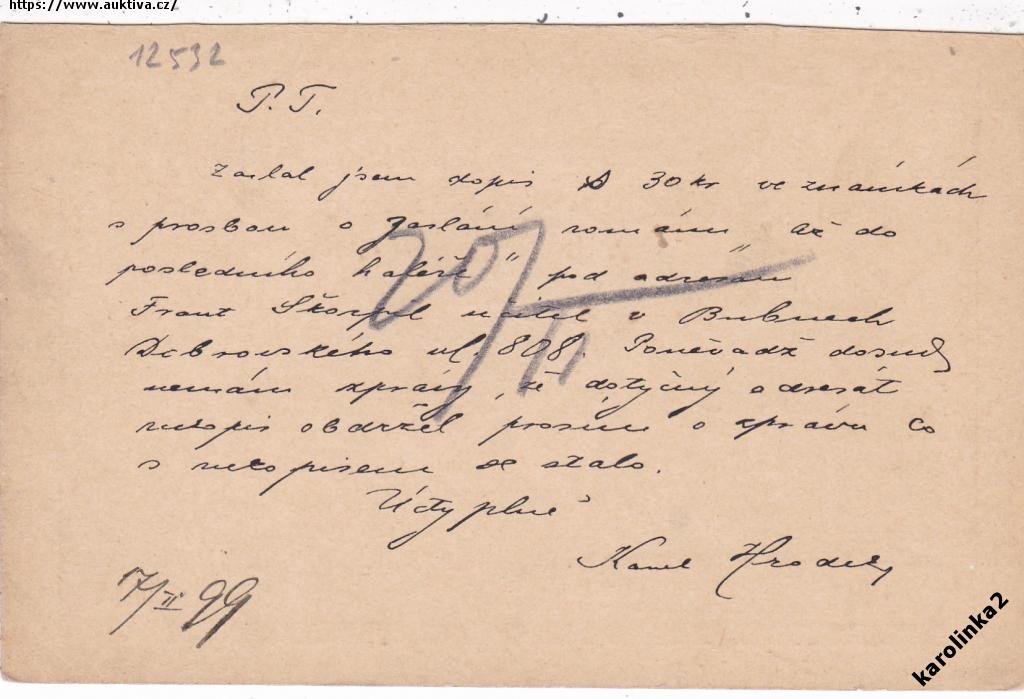 https://www.auktiva.cz/
12532
P. T.
Zaslal jsem dopis s 30 kr ve známkách
s prosbou o zaslání románu „Až do
posledního haléře" pod adresou
Frant Škorpil učitel v Bubnech
Dobrovského ul. 808. Poněvadž dosud
nemám zprávy, že dotyčný adresát
obdržel prosím o zprávu co
s se stalo.
Úcty plně
Karel
17/II 99
20/II
karolinka2